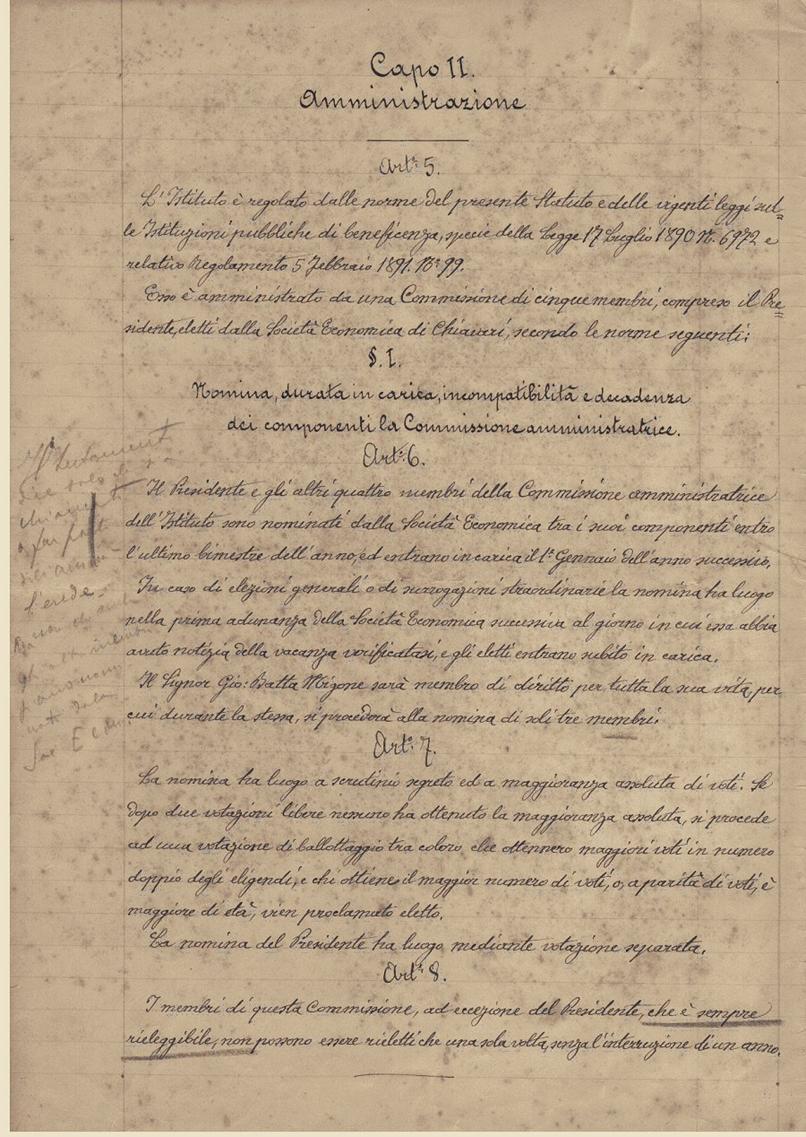 Capo II.
Amministrazione
Art.º 5.
L'Istituto è regolato dalle norme del presente Statuto e delle vigenti leggi sul=
le Istituzioni pubbliche di beneficenza, specie della Legge 17 Luglio 1890 N. 6972 e
relativo Regolamento 5 Febbraio 1891. Nº 99.
Esso è amministrato da una Commissione di cinque membri, compreso il Pre=
sidente, eletti dalla Società Economica di Chiavari, secondo le norme seguenti:
§. I.
Nomina, durata in carica, incompatibilità e decadenza
dei componenti la Commissione amministratrice.
Art.º 6.
Il Presidente e gli altri quattro membri della Commissione amministratrice
dell'Istituto sono nominati dalla Società Economica tra i suoi componenti entro
l'ultimo bimestre dell'anno, ed entrano in carica il 1º Gennaio dell'anno successivo.
In caso di elezioni generali o di surrogazioni straordinarie la nomina ha luogo
nella prima adunanza della Società Economica successiva al giorno in cui essa abbia
avuto notizia della vacanza verificatasi, e gli eletti entrano subito in carica.
Il Signor Gio: Batta Migone sarà membro di diritto per tutta la sua vita, per
cui durante la stessa, si procederà alla nomina di soli tre membri.
Art.º 7.
La nomina ha luogo a scrutinio segreto ed a maggioranza assoluta di voti. Se
dopo due votazioni libere nessuno ha ottenuto la maggioranza assoluta, si procede
ad una votazione di ballottaggio tra coloro, che ottennero maggiori voti in numero
doppio degli eligendi, e chi ottiene il maggior numero di voti, o, a parità di voti, è
maggiore di età, vien proclamato eletto.
La nomina del Presidente ha luogo mediante votazione separata.
Art.º 8.
I membri di questa Commissione, ad eccezione del Presidente, che è sempre
rieleggibile, non possono essere rieletti che una sola volta, senza l'interruzione di un anno.
l'erede